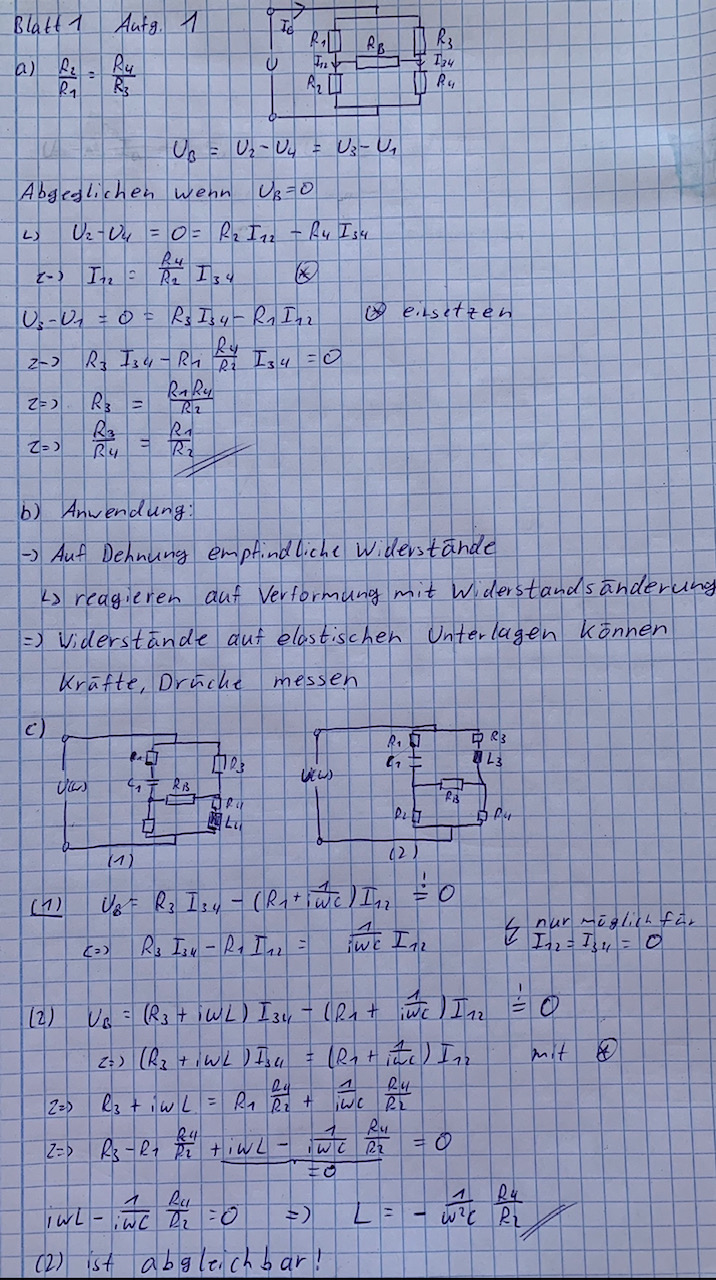 Blatt 1 Aufg. 1
I₀
R₁ R_B R₃
U I₁₂ I₃₄
R₂ R₄
a) R₂/R₁ = R₄/R₃
U_B = U₂-U₄ = U₃-U₁
Abgeglichen wenn U_B=0
↳ U₂-U₄ = 0 = R₂ I₁₂ - R₄ I₃₄
<=> I₁₂ = R₄/R₂ I₃₄ ⊛
U₃-U₁ = 0 = R₃ I₃₄ - R₁ I₁₂ ⊛ einsetzen
<=> R₃ I₃₄ - R₁ R₄/R₂ I₃₄ = 0
<=> R₃ = R₁R₄/R₂
<=> R₃/R₄ = R₁/R₂
b) Anwendung:
-> Auf Dehnung empfindliche Widerstände
↳ reagieren auf Verformung mit Widerstandsänderung
=> Widerstände auf elastischen Unterlagen können
Kräfte, Drücke messen
c)
R₁ R₃
U(ω) C₁ R_B R₄
L₄
(1)
R₁ R₃
U(ω) C₁ L₃
R_B
R₂ R₄
(2)
(1) U_B = R₃ I₃₄ - (R₁ + 1/iωC) I₁₂ =! 0
<=> R₃ I₃₄ - R₁ I₁₂ = 1/iωC I₁₂ ↯ nur möglich für
I₁₂ = I₃₄ = 0
(2) U_B = (R₃ + iωL) I₃₄ - (R₁ + 1/iωC) I₁₂ =! 0
<=> (R₃ + iωL) I₃₄ = (R₁ + 1/iωC) I₁₂ mit ⊛
<=> R₃ + iωL = R₁ R₄/R₂ + 1/iωC R₄/R₂
<=> R₃ - R₁ R₄/R₂ + iωL - 1/iωC R₄/R₂ = 0
=0
iωL - 1/iωC R₄/R₂ = 0 => L = - 1/ω²C R₄/R₂
(2) ist abgleichbar!